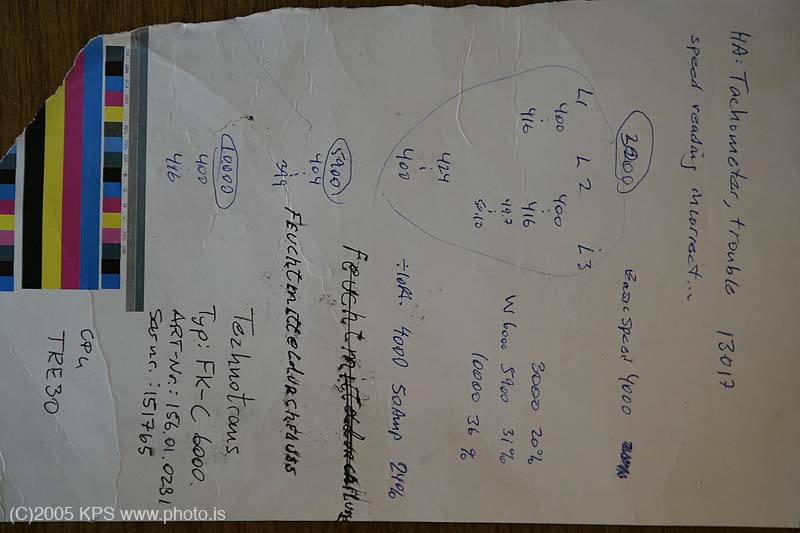 HA: Tachometer, trouble 13017
speed reading incorrect..
3000
Basic Speed 4000
L1 L2 L3
400 400
416 416
49.7
50.10
3000 20%
W 6000 5900 31%
10000 36%
424
400
÷loft. 4000 50Amp 24%
5900
404
Feuchtmitteldurchfluss
10000
400
416
Technotrans
Typ: FK-C 6000.
ART-Nr.: 156.01.0281
: 151765
CPU
TRE30
(C)2005 KPS www.photo.is